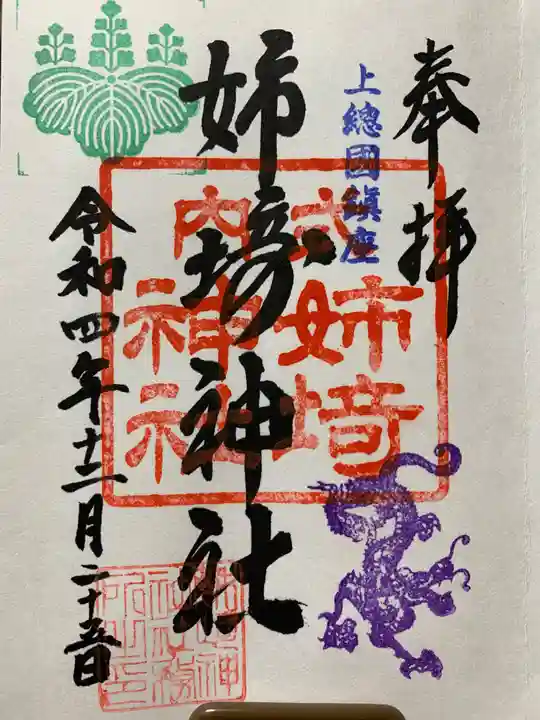 奉拝
上總國鎮座
式内
姉埼神社
姉埼神社
令和四年十二月二十五日